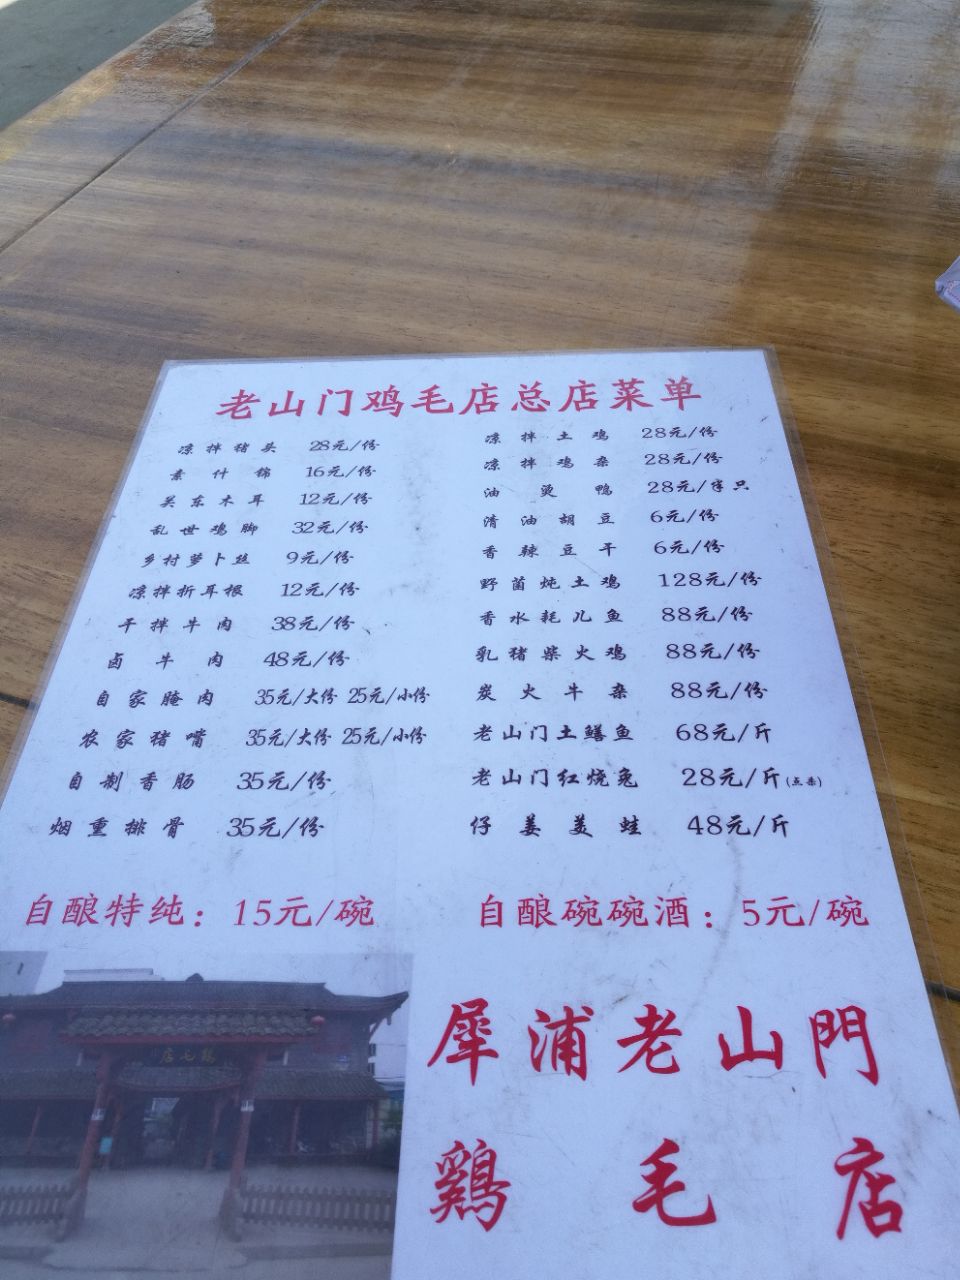 老山门鸡毛店总店菜单
凉拌猪头 28元/份
素什锦 16元/份
关东木耳 12元/份
乱世鸡脚 32元/份
乡村萝卜丝 9元/份
凉拌折耳根 12元/份
干拌牛肉 38元/份
卤牛肉 48元/份
自家腌肉 35元/大份 25元/小份
农家猪嘴 35元/大份 25元/小份
自制香肠 35元/份
烟熏排骨 35元/份
凉拌土鸡 28元/份
凉拌鸡杂 28元/份
油烫鸭 28元/半只
清油胡豆 6元/份
香辣豆干 6元/份
野菌炖土鸡 128元/份
香水耗儿鱼 88元/份
乳猪柴火鸡 88元/份
炭火牛杂 88元/份
老山门土鳝鱼 68元/斤
老山门红烧兔 28元/斤(点杀)
仔姜美蛙 48元/斤
自酿特纯：15元/碗
自酿碗碗酒：5元/碗
店毛鷄
犀浦老山門
鷄毛店